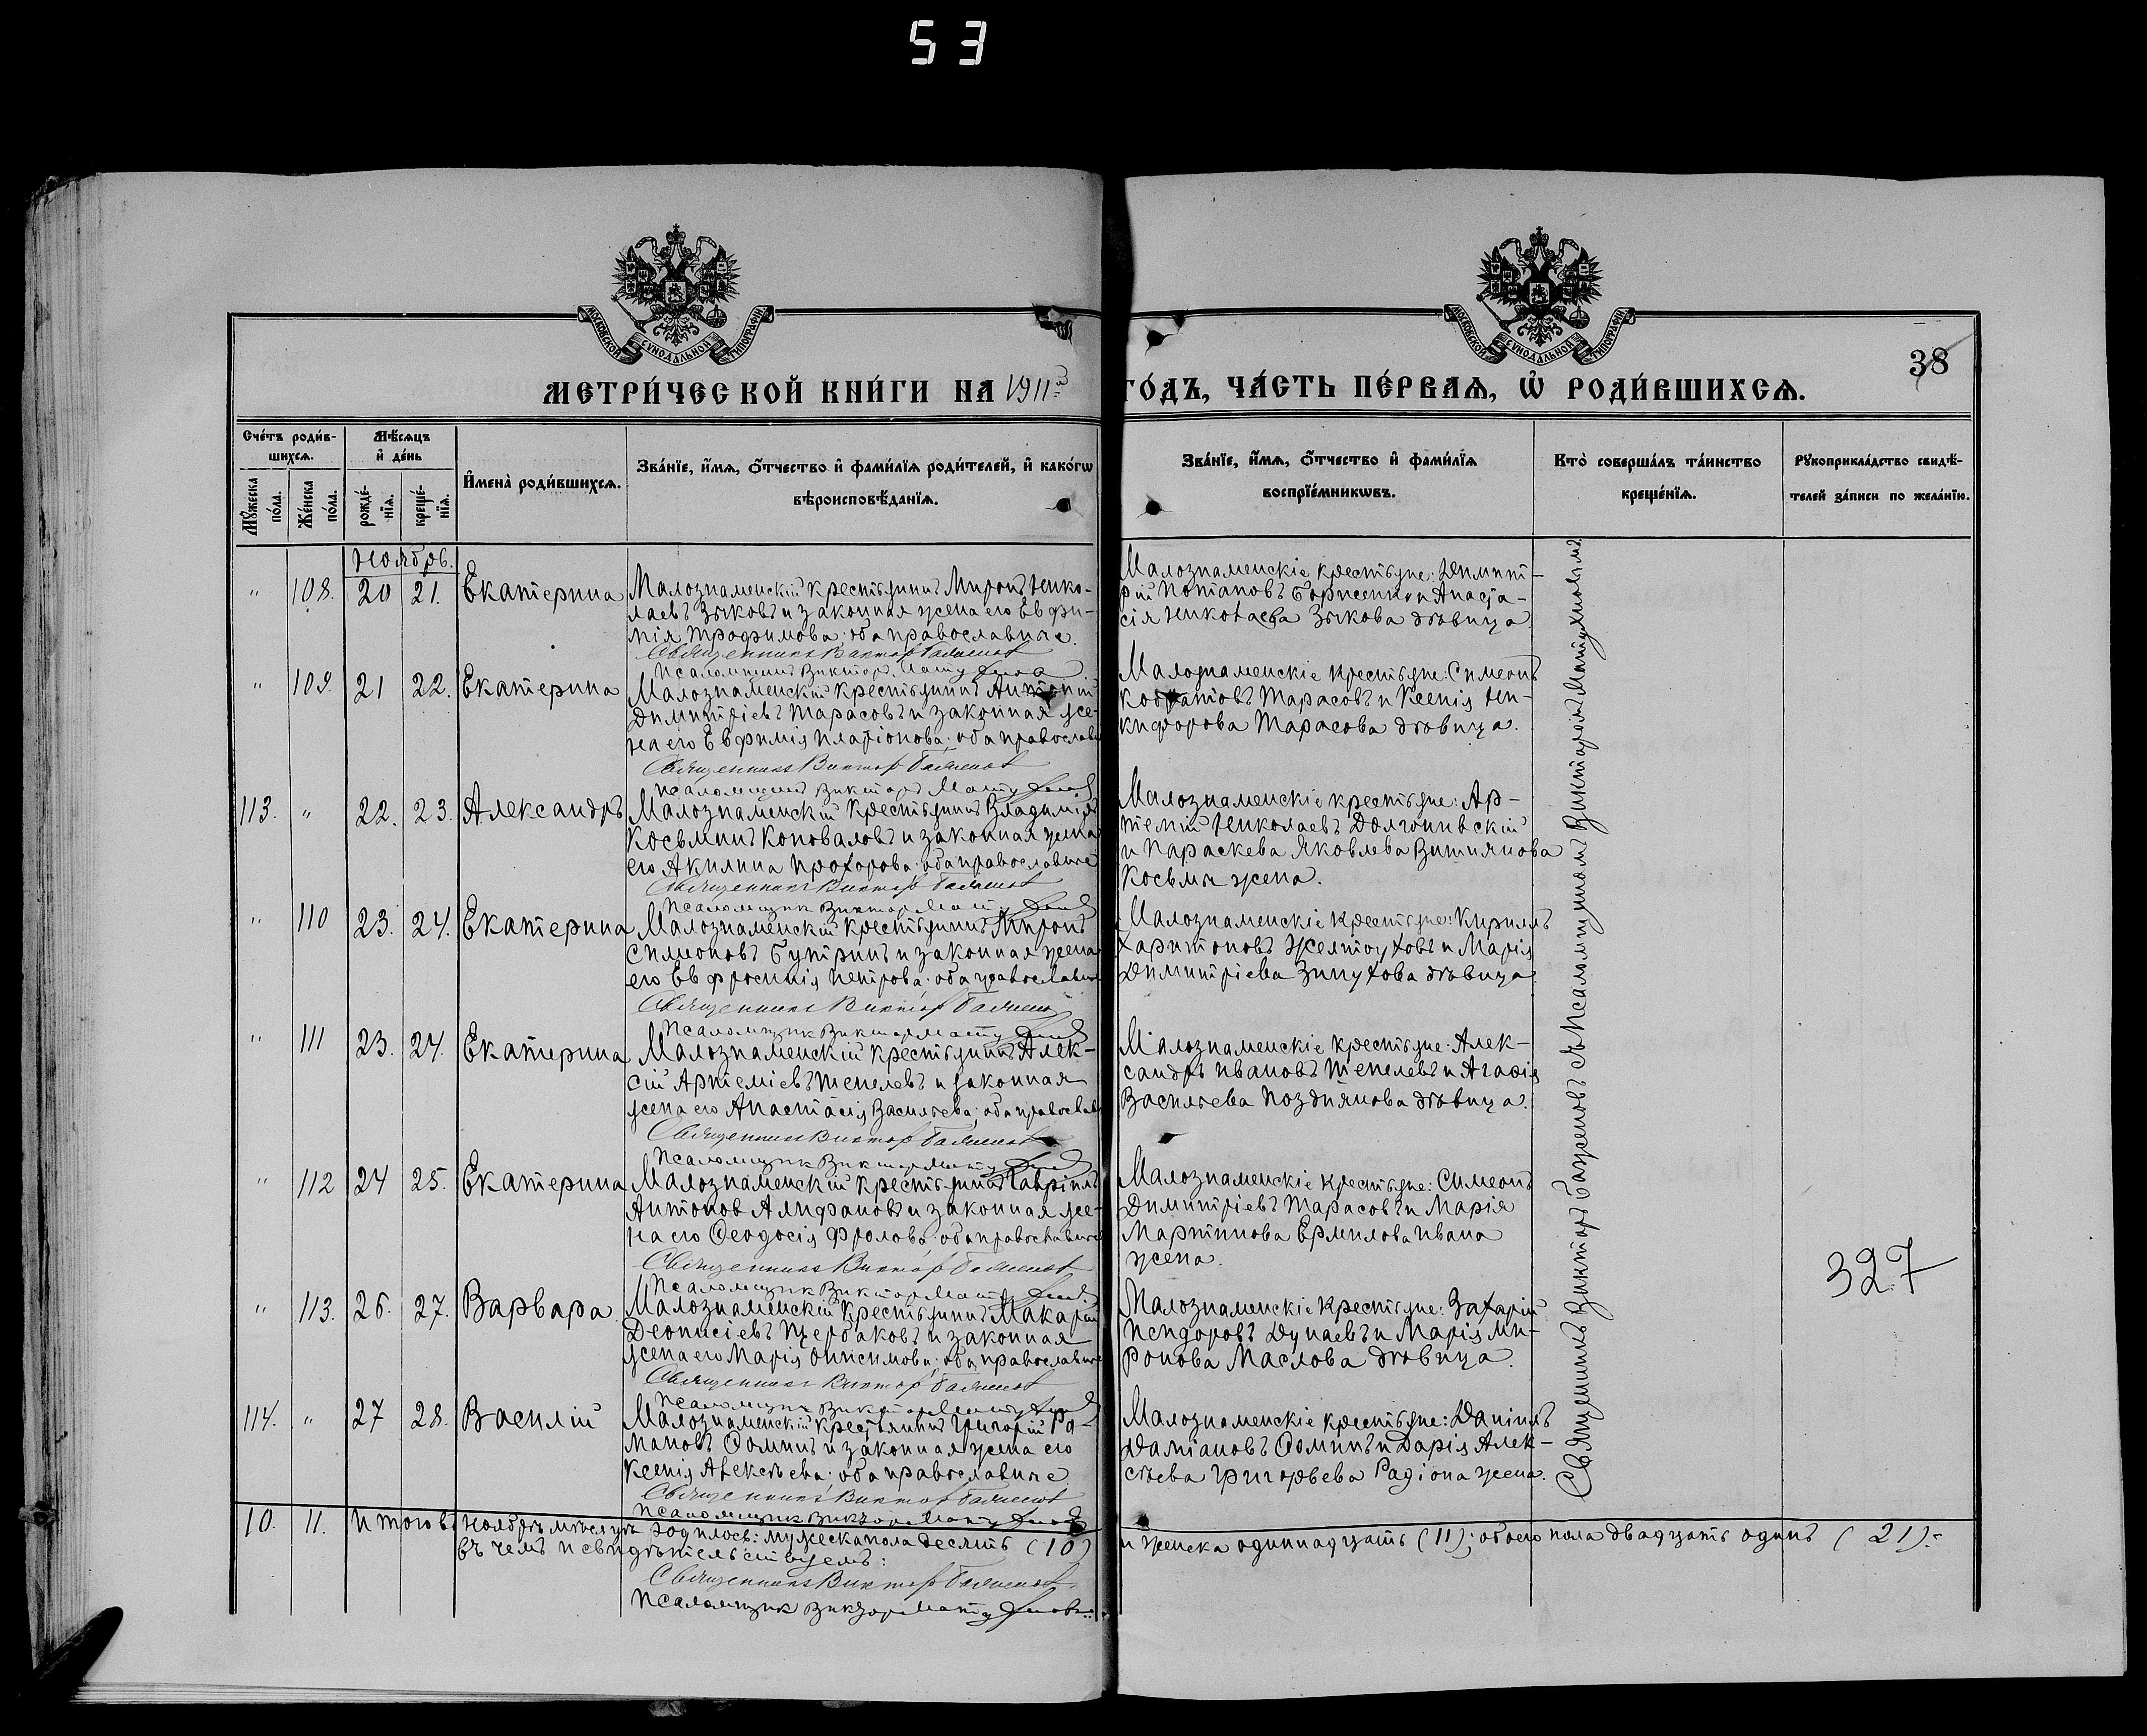 53
МОСКОВСКОЙ СѴНОДАЛЬНОЙ ТИПОГРАФІИ
МОСКОВСКОЙ СѴНОДАЛЬНОЙ ТИПОГРАФІИ
38
МЕТРИ́ЧЕСКОЙ КНИ́ГИ НА 1911й ГО́ДЪ, ЧА́СТЬ ПЕ́РВАѦ, Ѡ҆ РОДИ́ВШИХСѦ.
Сче́тъ роди́в-
шихсѧ.
Мꙋ́жеска
по́ла.
Же́нска
по́ла.
Мѣ́сѧцъ
и҆ де́нь
рожде́-
нїѧ.
креще́-
нїѧ.
И҆мена̀ роди́вшихсѧ.
Зва́нїе, и҆́мѧ, ѻ҆́тчество и҆ фами́лїѧ роди́телей, и҆ како́гѡ
вѣроисповѣ́данїѧ.
Зва́нїе, и҆́мѧ, ѻ҆́тчество и҆ фами́лїѧ
воспрїе́мникѡвъ.
Кто̀ соверша́лъ та́инство
креще́нїѧ.
Рꙋкоприкла́дство свидѣ́-
телей за́писи по жела́нїю.
Ноябрь.
" 108. 20 21. Екатерина
Малознаменскій крестьянинъ Миронъ Нико-
лаевъ Зыковъ и законная жена его Евфи-
мія Трофимова; оба православные.
Священникъ Виктор Баженов
Псаломщикъ Викторъ
Малознаменскіе крестьяне: Димит-
рій Потаповъ Борисенко и Анаста-
сія Николаева Зыкова дѣвица.
" 109. 21 22. Екатерина
Малознаменскій крестьянинъ Антоній
Димитріевъ Тарасовъ и законная же-
на его Евфимія Иларіонова; оба православн
Священникъ Виктор Баженов
Псаломщикъ Викторъ
Малознаменскіе крестьяне: Симеонъ
Тарасовъ и Ксенія Ни-
кифорова Тарасова дѣвица.
113. " 22. 23. Александръ
Малознаменскій крестьянинъ Владиміръ
Косьминъ Коноваловъ и законная жена
его Акилина Прохорова; оба православные
Священникъ Виктор Баженов
Псаломщик Виктор
Малознаменскіе крестьяне: Ар-
темій Николаевъ
и Параскева Яковлева
Косьмы жена.
" 110 23. 24. Екатерина
Малознаменскій крестьянинъ Миронъ
Симеоновъ Бутринъ и законная жена
его Евфросинія Петрова; оба православн
Священникъ Виктор Баженов
Псаломщик Виктор
Малознаменскіе крестьяне: Кириллъ
Харитоновъ Желтоуховъ и Марія
Димитріева Зипухова дѣвица.
" 111 23. 24. Екатерина
Малознаменскій крестьянинъ Алек-
сій Артеміевъ Тепелевъ и законная
жена его Анастасія Васильева; оба православ
Священникъ Виктор Баженов
Псаломщик Виктор
Малознаменскіе крестьяне: Алек-
сандръ Ивановъ Тепелевъ и Агаѳія
Васильева Позднякова дѣвица.
" 112 24 25. Екатерина
Малознаменскій крестьянинъ Гавріилъ
Антонов Алифановъ и законная же-
на его Ѳеодосія Фролова; оба православные
Священникъ Виктор Баженов
Псаломщик Виктор
Малознаменскіе крестьяне: Симеонъ
Димитріевъ Тарасовъ и Марія
Мартинова Ермилова Ивана
жена.
327
" 113. 26. 27. Варвара
Малознаменскій крестьянинъ Макарій
Деонисіевъ Щербаковъ и законная
жена его Марія Онисимова; оба православные
Священникъ Виктор Баженов
Псаломщик Виктор
Малознаменскіе крестьяне: Захарій
Исидоровъ Дунаевъ и Марія Ми-
ронова Маслова дѣвица.
114. " 27 28. Василій
Малознаменскій крестьянинъ Григорій Ро-
мановъ Ѳоминъ и законная жена его
Ксенія Алексѣева; оба православные
Священникъ Виктор Баженов
Псаломщик Виктор
Малознаменскіе крестьяне: Даніилъ
Даміановъ Ѳоминъ и Дарія Алек-
сѣева Григорьева Радіона жена.
Священникъ Викторъ Баженовъ съ псаломщикомъ Викторомъ
10. 11. Итого въ ноябрѣ мѣсяцѣ родилось: мужеска пола десять (10) и женска одиннадцать (11); обоего пола двадцать одинъ (21).-
въ чемъ и свидѣтельствуемъ:
Священникъ Виктор Баженов
Псаломщик Виктор